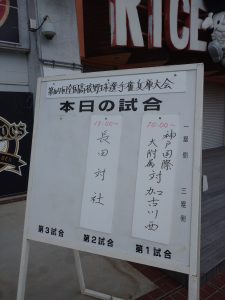 RICE
全国高校野球選手権兵庫大会
本日の試合
一塁側 三塁側
10:00〜
神戸国際大附属 対 加古川西
13:00〜
長田 対 社
第1試合
第2試合
第3試合